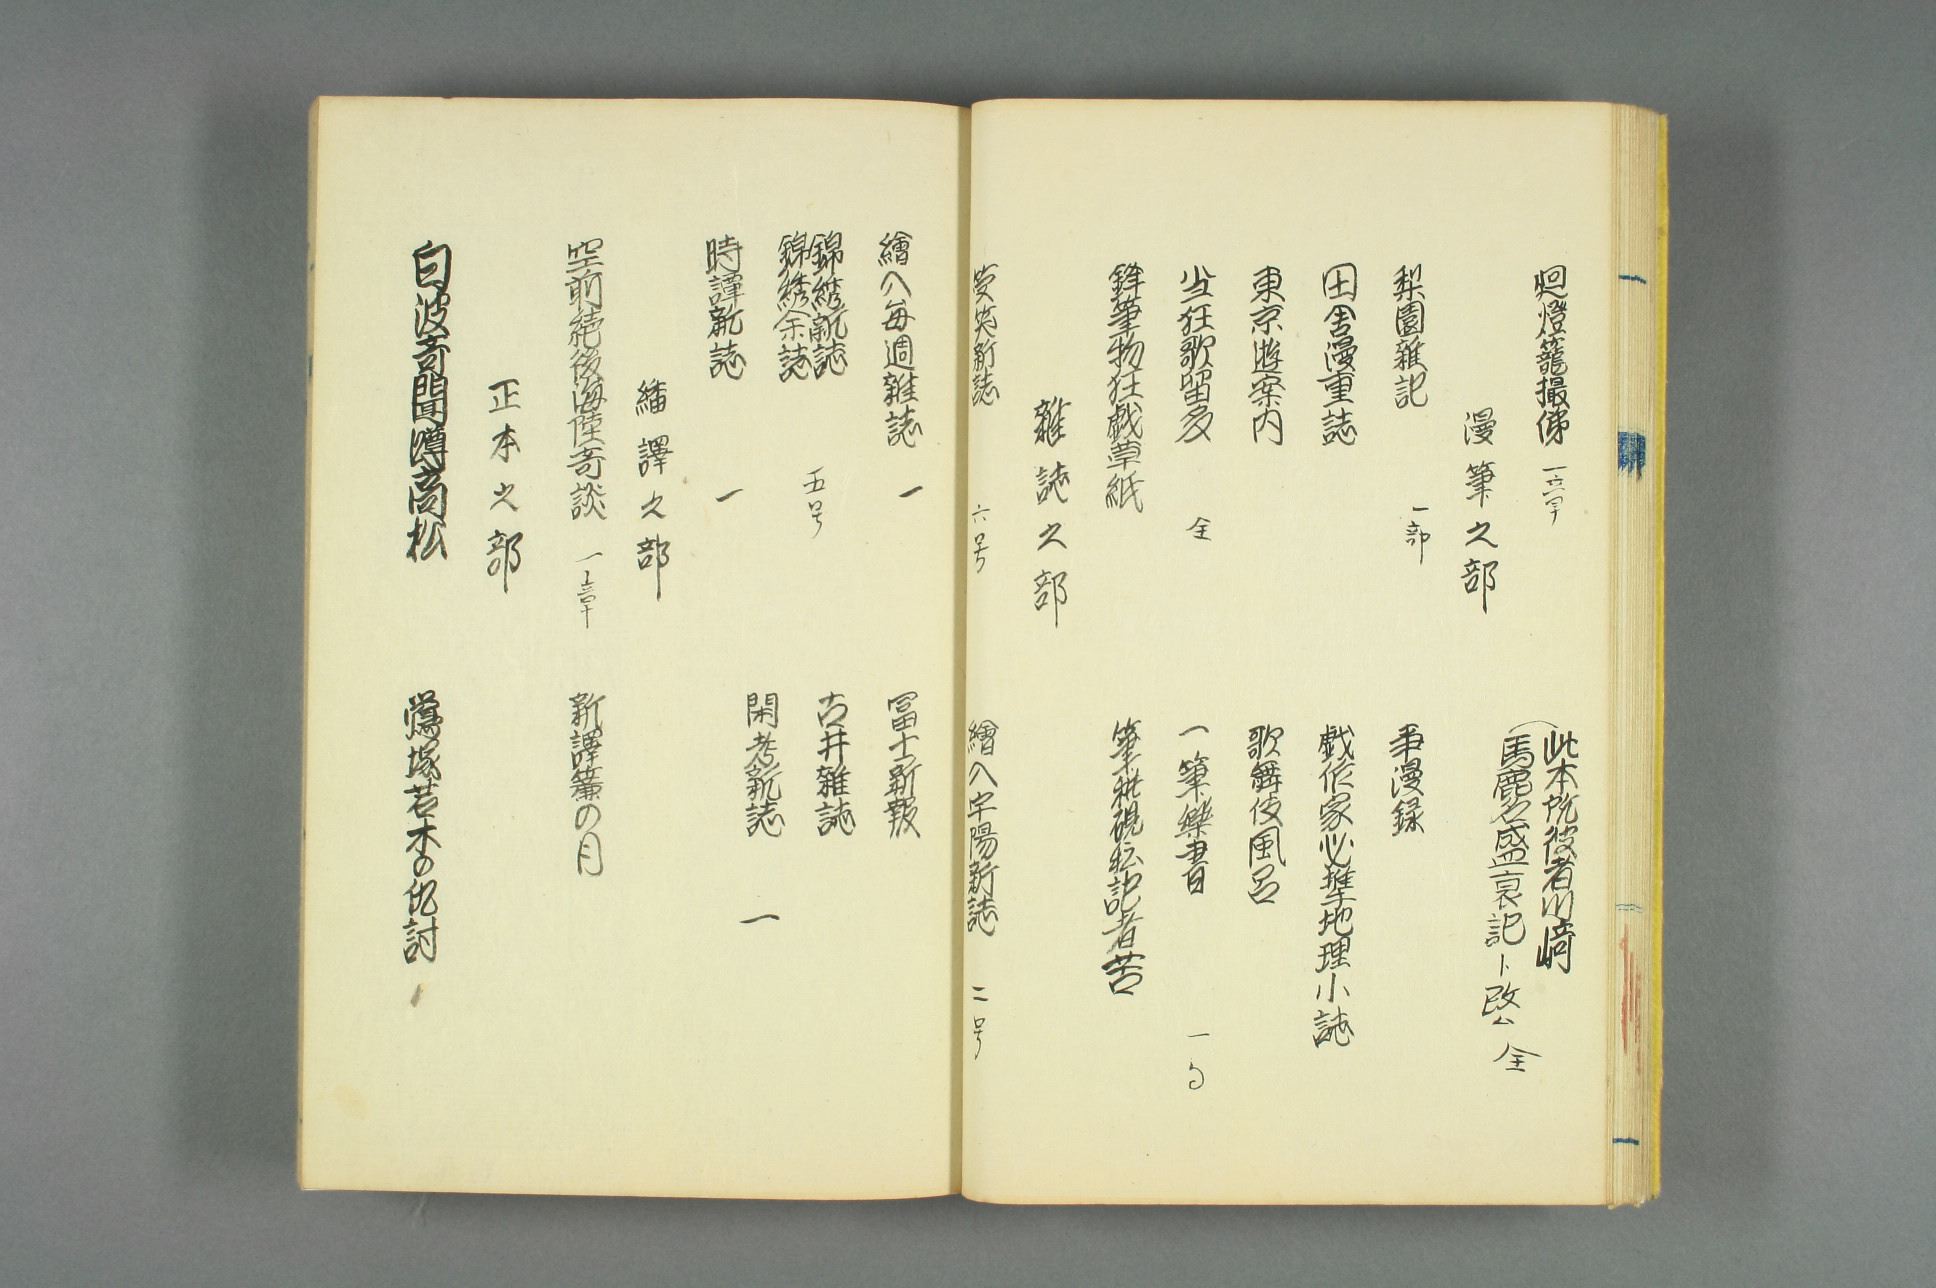 廻燈籠撮俤
此本院役者川﨑
馬鹿名盛衰記ト改ム 全
漫筆之部
梨園雜記 一部
事漫録
田舎漫重誌
戯作家必携地理小誌
東京遊案内
歌舞伎風呂
当狂歌留多 全
一筆樂書
鋒筆物狂戯草紙
筆耕硯耘記者苦
雜誌之部
六号
繪入宇陽新誌 二号
繪入毎週雜誌 一
冨士新報
錦綉新誌 五号
錦綉余誌
古井雜誌
時譚新誌 一
閑考新誌 一
繙譯之部
空前絶後海陸奇談
新譯簾の月
正本之部
白波奇聞噂高松
鶯塚若木の仇討